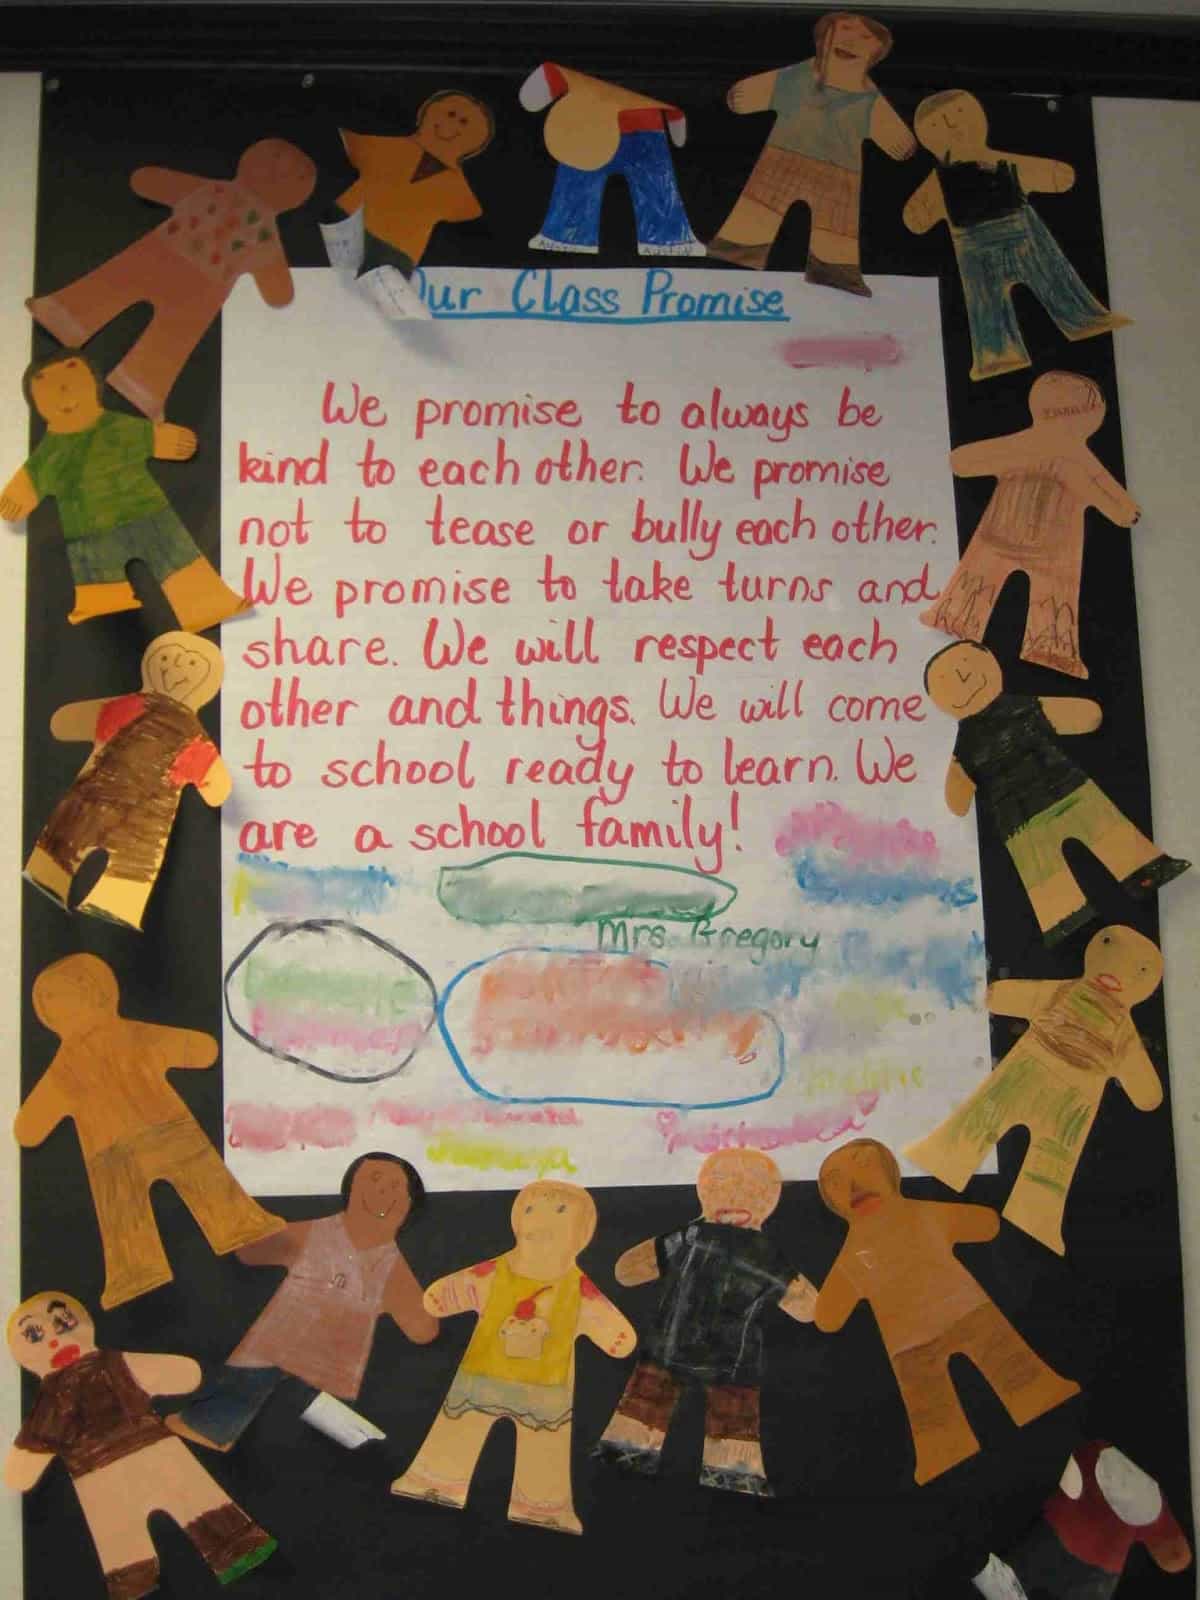 Our Class Promise
We promise to always be
kind to each other. We promise
not to tease or bully each other.
We promise to take turns and
share. We will respect each
other and things. We will come
to school ready to learn. We
are a school family!
Mrs. Gregory